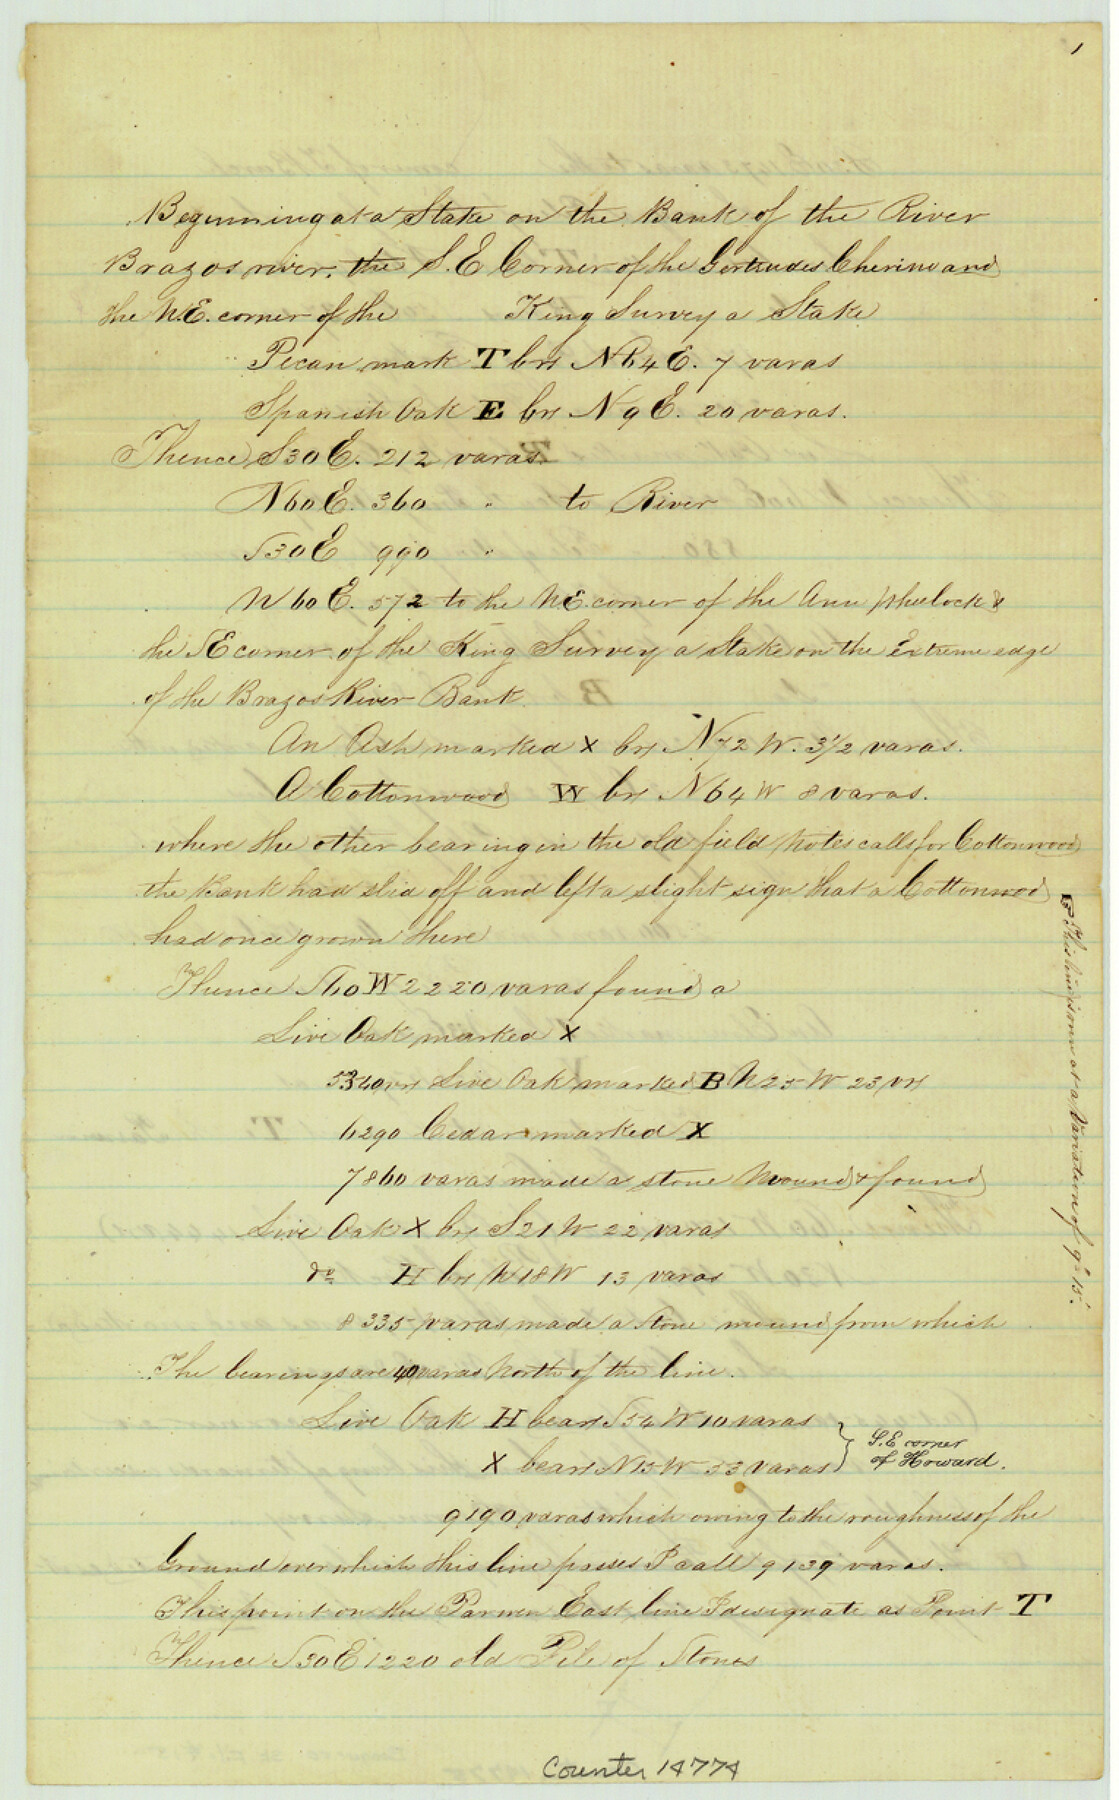 1
Beginning at a Stake on the Bank of the River
Brazos river. the S.E Corner of the Gertrudes Cherino and
the N.E. corner of the King Survey a Stake
Pecan mark T brs N 64 E. 7 varas
Spanish Oak E brs N 9 E. 20 varas.
Thence S 30 E. 212 varas.
N 60 E. 360 " to River
S 30 E 990 "
N 60 E. 572 to the N.E. corner of the Ann Wheelock &
the S E corner of the King Survey a Stake on the Extreme edge
of the Brazos River Bank.
An Ash marked X brs N 72 W. 3 1/2 varas.
A Cottonwood W brs N 64 W 8 varas.
where the other bearing in the old field Notes calls for Cottonwood
the bank had slid off and left a slight sign that a Cottonwood
had once grown there
Thence S 60 W 2220 varas found a
Live Oak marked X
5340 vrs Live Oak marked B N 25 W 23 vrs
6290 Cedar marked X
7860 varas made a stone Mound & found
Live Oak X brs S 21 W 22 varas
do H brs N 18 W 13 varas
8335 varas made a Stone mound from which
The bearings are 40 varas North of the line.
Live Oak H bears S 54 W 10 varas
X bears N 15 W 53 varas
S.E corner
of Howard.
9190 varas which owing to the roughness of the
Ground over which this line passes I call 9139 varas.
This point on the Parmer East line I designate as Point T
Thence S 30 E 1220 old Pile of Stones
This line is run at a Variation of 9° 15'.
Counter 14774